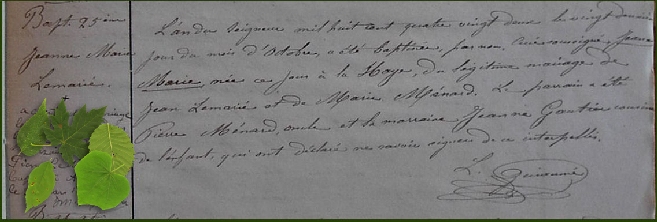 Bapt. 25ème
Jeanne Marie
Lemarié.
L'an du Seigneur mil huit cent quatre vingt deux le vingt deuxième
jour du mois d'Octobre, a été baptisée, par nous, Jeanne
Marie, née ce jour à la Haye, du légitime mariage de
Jean Lemarié et de Marie Ménard. Le parrain a été
Pierre Ménard, oncle et la marraine Jeanne Gautier cousine
de l'enfant, qui ont déclaré ne savoir signer de ce interpellés.